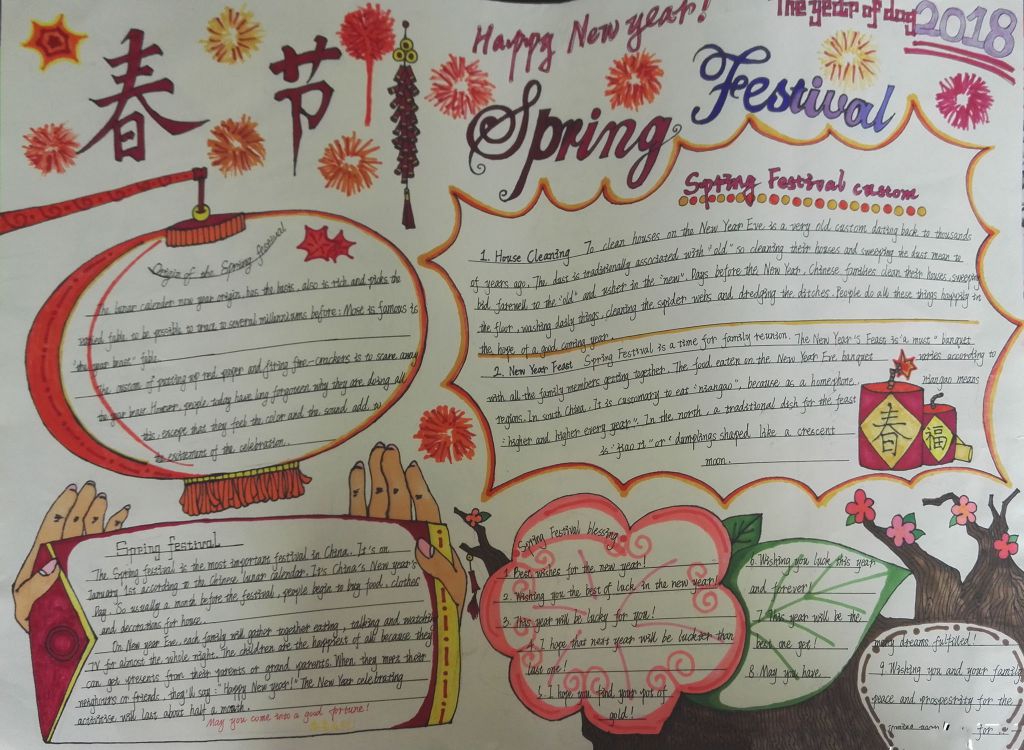 春节
Happy New year!
The year of dog 2018
Spring Festival
Origin of the Spring festival
The lunar calender new year origin, has the hasts, also is rich and picks the
varied fable to be possible to trace to several millenniums before: Most is famous is
"the year beast" fable.
The custom of putting up red paper and firing fire-crackers is to scare away
the year beast. However, people today have long forgotten why they are doing all
this, except that they feel the color and the sound add to
the excitement of the celebration.
Spring Festival custom
1. House Cleaning To clean houses on the New Year Eve is a very old custom dating back to thousands
of years ago. The dust is traditionally associated with "old" so cleaning their houses and sweeping the dust mean to
bid farewell to the "old" and usher in the "new". Days before the New Year, Chinese families clean their houses, sweeping
the floor, washing daily things, cleaning the spider webs and dredging the ditches. People do all these things happily in
the hope of a good coming year.
2. New Year Feast Spring Festival is a time for family reunion. The New Year's Feast is "a must" banquet
with all the family members getting together. The food eaten on the New Year Eve banquet varies according to
regions. In south China, It is customary to eat "niangao", because as a homophone, niangao means
"higher and higher every year". In the north, a traditional dish for the feast
is "Jiao zi" or "dumplings shaped like a crescent
moon.
春
福
Spring festival
The Spring festival is the most important festival in China. It's on
January 1st according to the Chinese lunar calendar. It's China's New year's
Day. So usually a month before the festival, people begin to buy food, clothes
and decorations for house.
On New year Eve, each family will gather together eating, talking and watching
TV for almost the whole night. The children are the happiest of all because they
can get presents from their parents or grand parents. When they meet their
neighbors or friends, they'll say: "Happy New year!" The New Year celebrating
activitise will last about half a month.
May you come into a good fortune!
Spring Festival blessing
1. Best wishes for the new year!
2. Wishing you the best of luck in the new year!
3. This year will be lucky for you!
4. I hope that next year will be luckier than
last one!
5. I hope you find your pot of
gold!
6. Wishing you luck this year
and forever!
7. This year will be the
best one yet!
8. May you have
many dreams fulfilled!
9. Wishing you and your family
peace and prosperity for the
for